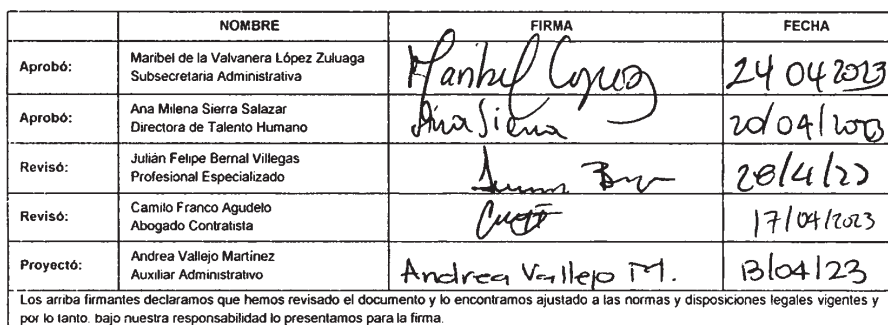 NOMBRE FIRMA FECHA
Aprobó: Maribel de la Valvanera López Zuluaga
Subsecretaria Administrativa
Maribel Lopez 24 04 2023
Aprobó: Ana Milena Sierra Salazar
Directora de Talento Humano
Ana Sierra 20/04/2023
Revisó: Julián Felipe Bernal Villegas
Profesional Especializado
Revisó: Camilo Franco Agudelo
Abogado Contratista
17/04/2023
Proyectó: Andrea Vallejo Martínez
Auxiliar Administrativo
Andrea Vallejo M. 13/04/23
Los arriba firmantes declaramos que hemos revisado el documento y lo encontramos ajustado a las normas y disposiciones legales vigentes y
por lo tanto, bajo nuestra responsabilidad lo presentamos para la firma.